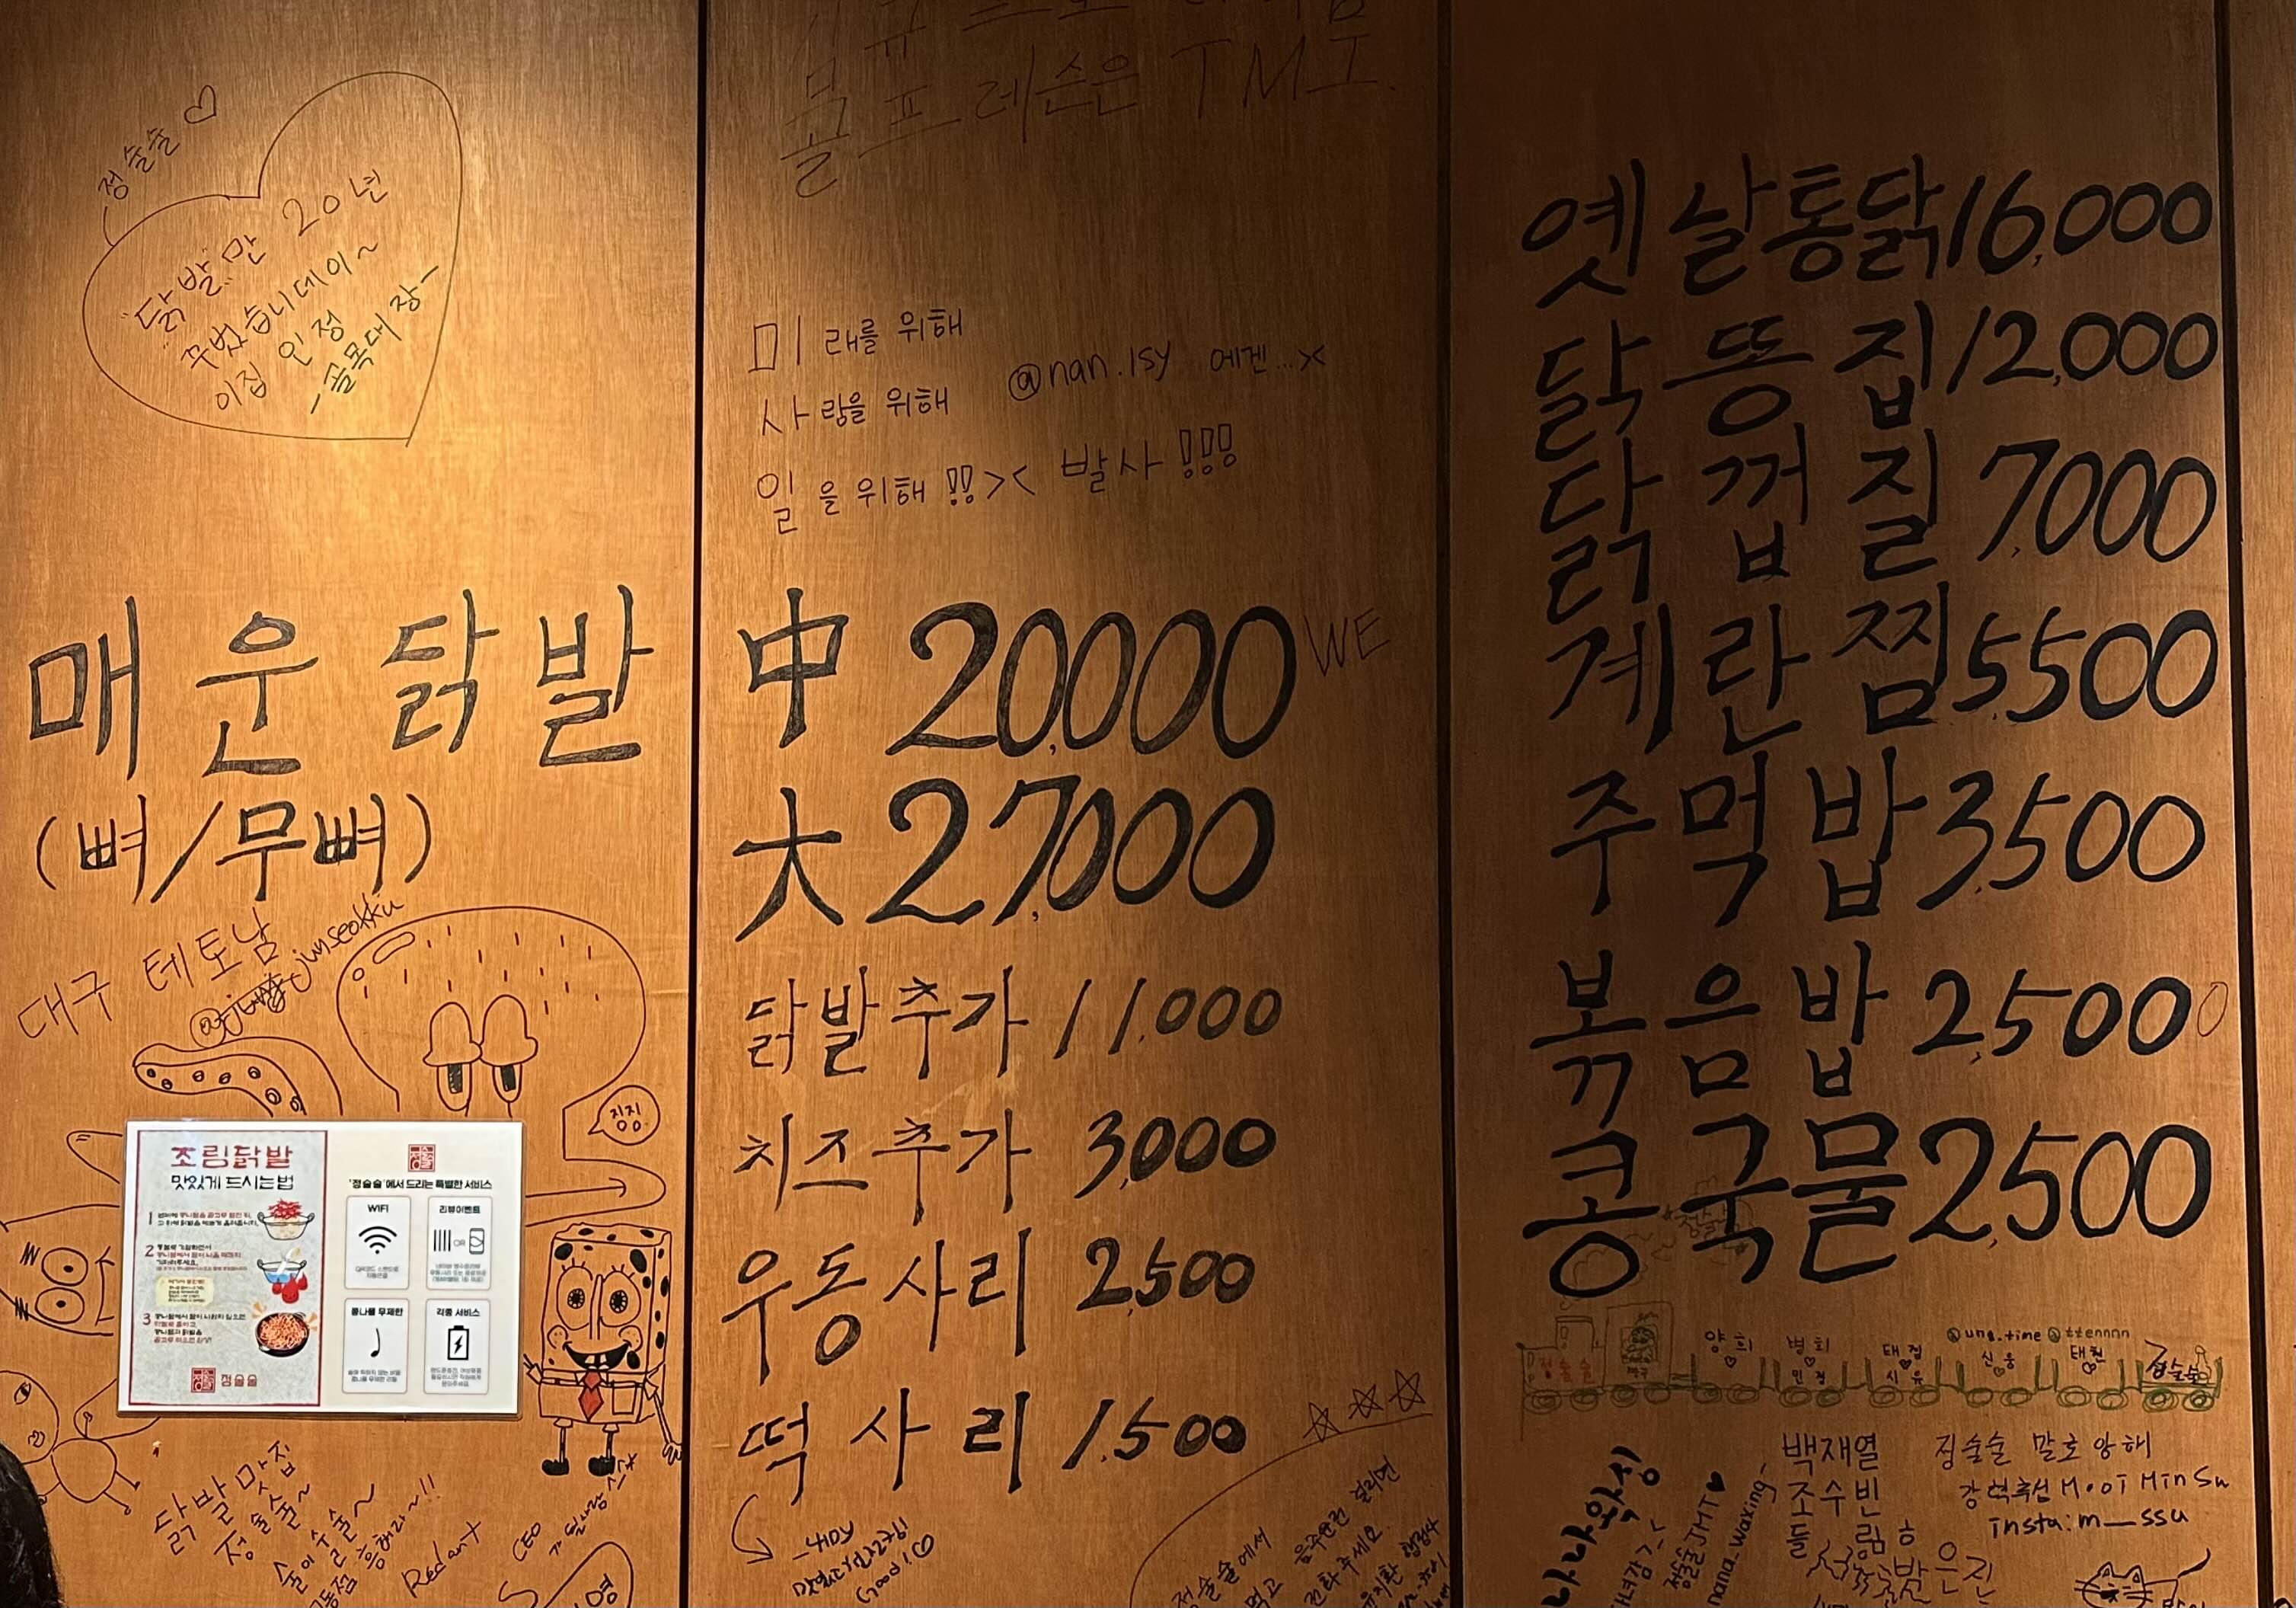 정술술♡
"닭발"만 20년
꾸벘습니데이~
이집 인정
-골목대장-
매운닭발
(뼈/무뼈)
대구 테토남
jinseokku
징징
조림닭발
맛있게 드시는법
1
2
3
정술술
'정술술'에서 드리는 특별한 서비스
WIFI
리뷰이벤트
OR
콩나물 무제한
각종 서비스
닭발맛집
정술술~
술이 술술~
Redant
CEO
골프레슨은 TMI.
미래를 위해
사랑을 위해 @nan.1sy 에겐...><
일을 위해 !!>< 발사!!!
中 20,000 WE
大 27,000
닭발추가 11,000
치즈추가 3,000
우동사리 2,500
떡사리 1,500
Good!
정술술에서
먹고 음주운전 걸리면
전화주세요.
옛날통닭 16,000
닭똥집 12,000
닭껍질 7,000
계란찜 5,500
주먹밥 3,500
볶음밥 2,500
콩국물 2,500
정술술
양희
병희
민정
@una.time @ttennnn
신웅
정술술
백재열
조수빈
정술술 JMT♥
nana_waxing-
insta:m__ssu